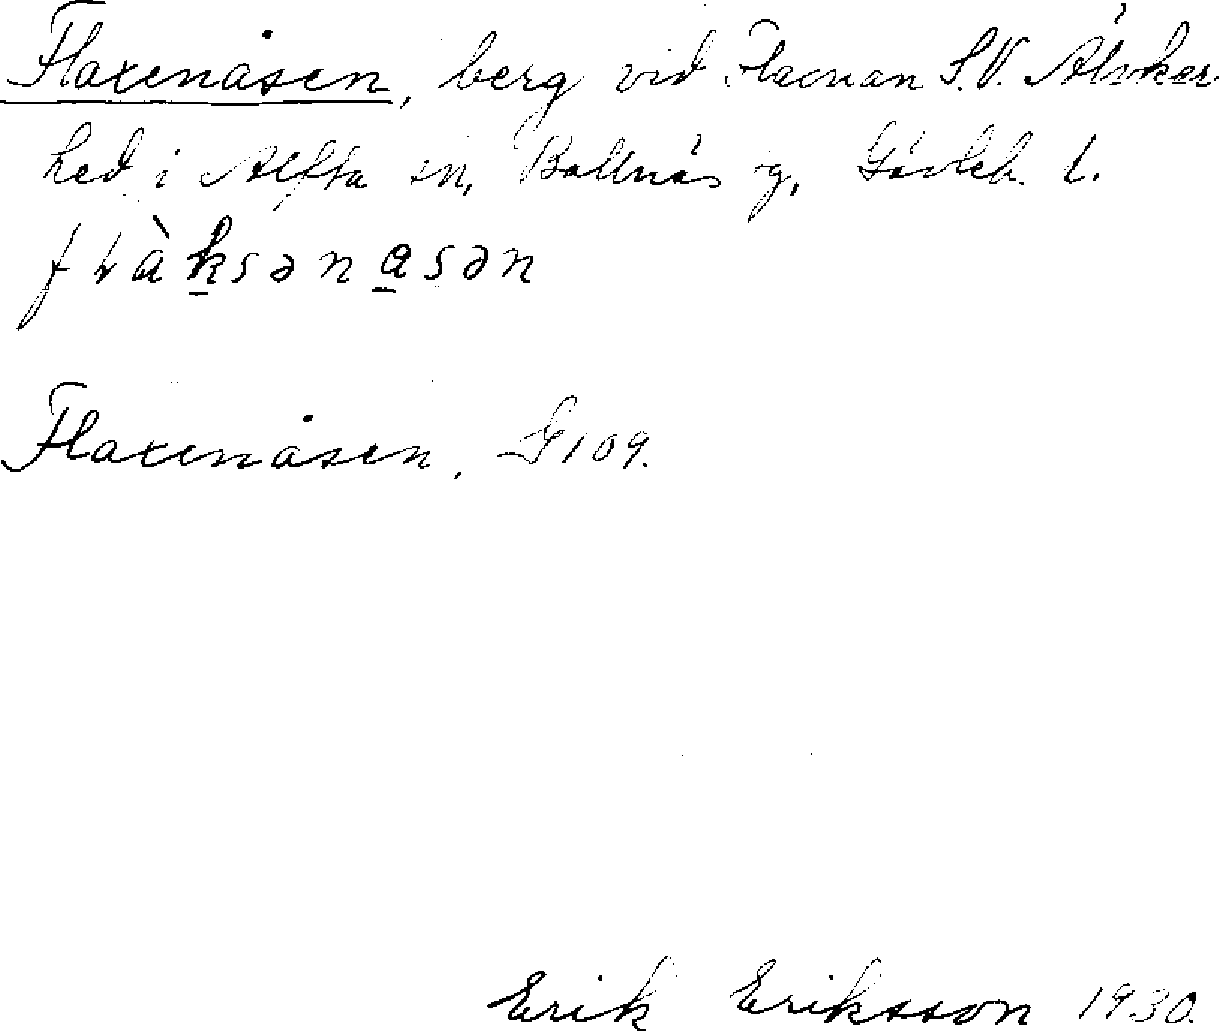 Flaxenåsen, berg vid Flaxnan S.V. Älvkar-
hed i Alfta sn, Bollnäs tg, Gävleb. l.
flàksənasən
Flaxenåsen, G 109.
Erik Eriksson 1930.